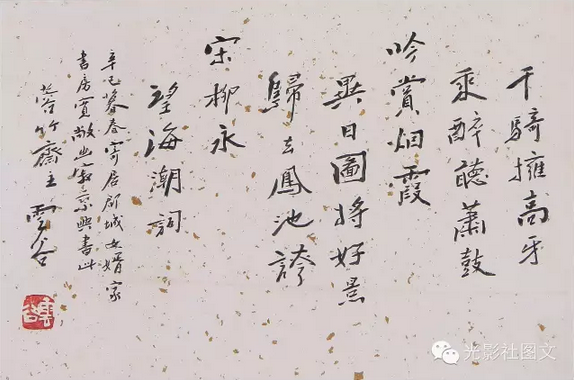 千騎擁高牙
乘醉聽蕭鼓
吟賞烟霞
異日圖將好景
歸去鳳池誇
宋柳永
望海潮詞
辛巳暮春寄居郡城女婿家
書房寬敞幽寂乘興書此
竹齋主雲谷
光影社图文